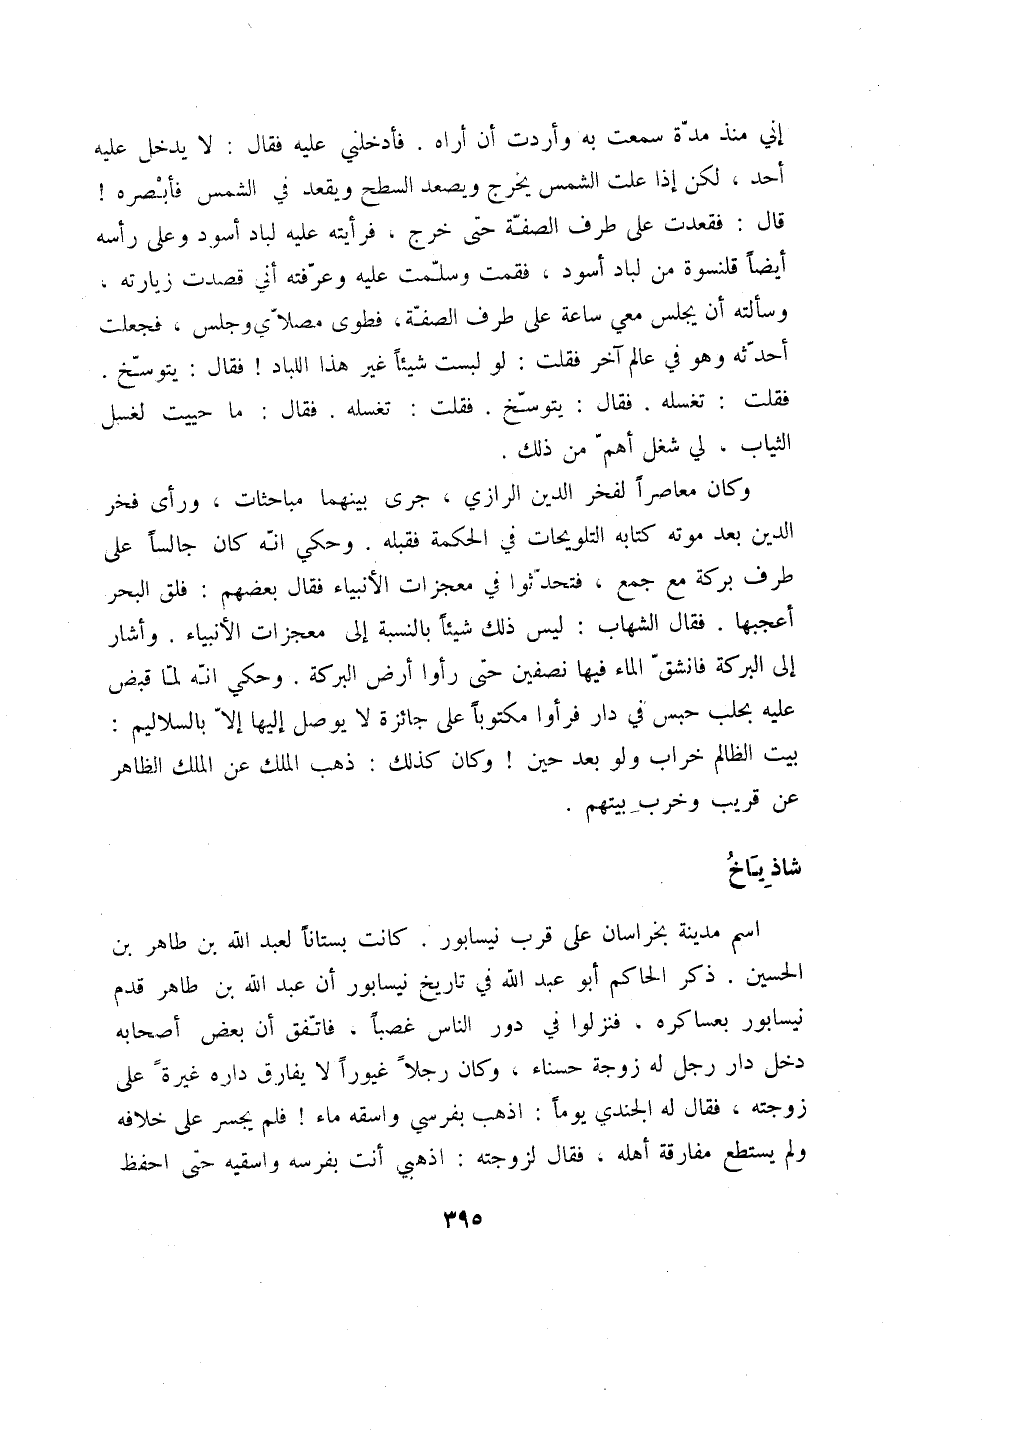 إني منذ مدّة سمعت به وأردت أن أراه . فأدخلني عليه فقال : لا يدخل عليه
أحد ، لكن إذا علت الشمس يخرج ويصعد السطح ويقعد في الشمس فأبْصره !
قال : فقعدت على طرف الصفّة حتى خرج ، فرأيته عليه لباد أسود وعلى رأسه
أيضاً قلنسوة من لباد أسود ، فقمت وسلّمت عليه وعرّفته أني قصدت زيارته ،
وسألته أن يجلس معي ساعة على طرف الصفّة، فطوى مصلاّي وجلس ، فجعلت
أحدّثه وهو في عالم آخر فقلت : لو لبست شيئاً غير هذا اللباد ! فقال : يتوسّخ .
فقلت : تغسله . فقال : يتوسّخ . فقلت : تغسله . فقال : ما حييت لغسل
الثياب ، لي شغل أهمّ من ذلك .
وكان معاصراً لفخر الدين الرازي ، جرى بينهما مباحثات ، ورأى فخر
الدين بعد موته كتابه التلويحات في الحكمة فقبله . وحكي انّه كان جالساً على
طرف بركة مع جمع ، فتحدّثوا في معجزات الأنبياء فقال بعضهم : فلق البحر
أعجبها . فقال الشهاب : ليس ذلك شيئاً بالنسبة إلى معجزات الأنبياء . وأشار
إلى البركة فانشقّ الماء فيها نصفين حتّى رأوا أرض البركة . وحكي انّه لمّا قبض
عليه بحلب حبس في دار فرأوا مكتوباً على جائزة لا يوصل إليها إلاّ بالسلاليم :
بيت الظالم خراب ولو بعد حين ! وكان كذلك : ذهب الملك عن الملك الظاهر
عن قريب وخرب بيتهم .
شاذِيَاخُ
اسم مدينة بخراسان على قرب نيسابور . كانت بستاناً لعبد الله بن طاهر بن
الحسين . ذكر الحاكم أبو عبد الله في تاريخ نيسابور أن عبد الله بن طاهر قدم
نيسابور بعساكره . فنزلوا في دور الناس غصباً . فاتّفق أن بعض أصحابه
دخل دار رجل له زوجة حسناء ، وكان رجلاً غيوراً لا يفارق داره غيرةً على
زوجته ، فقال له الجندي يوماً : اذهب بفرسي واسقه ماء ! فلم يجسر على خلافه
ولم يستطع مفارقة أهله ، فقال لزوجته : اذهبي أنت بفرسه واسقيه حتّى احفظ
٣٩٥